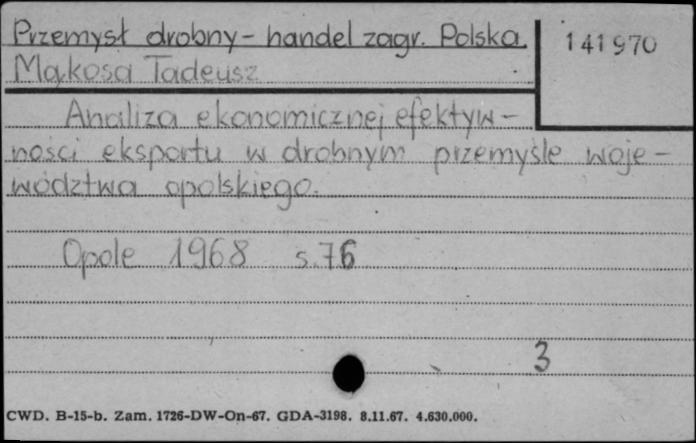 Przemysł drobny – handel zagr. Polska.
141970
Mąkosa Tadeusz
Analiza ekonomicznej efektyw-
ności eksportu w drobnym przemyśle woje-
wództwa opolskiego.
Opole 1968 s.76
3
CWD. B-15-b. Zam. 1726-DW-On-67. GDA-3198. 8.11.67. 4.630.000.